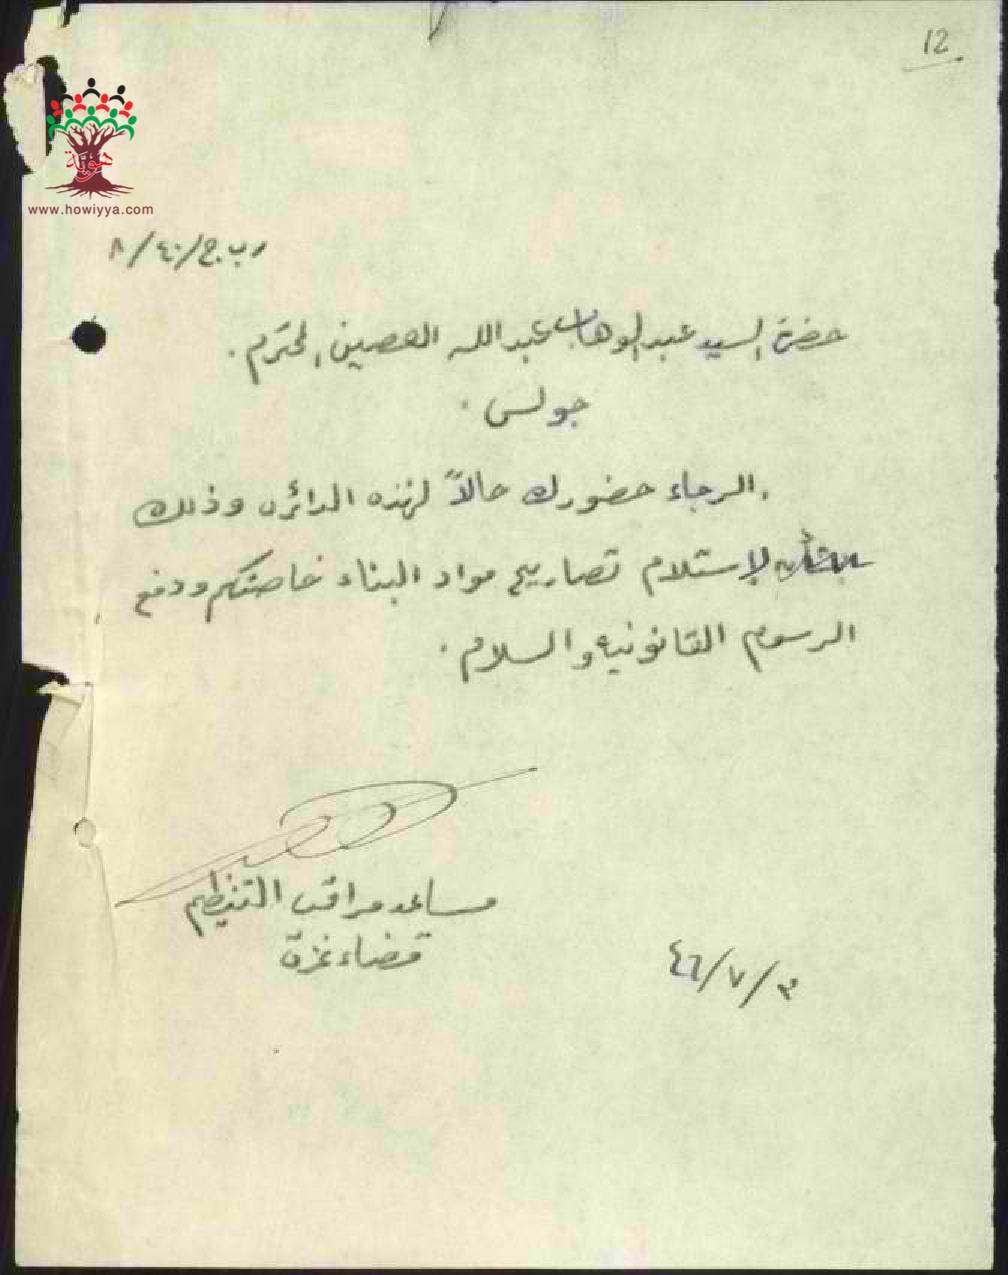 12
هوية
www.howiyya.com
ر ب ج/٤٠/٨
حضرة السيد عبد الوهاب عبد الله العصين المحترم.
جولس.
الرجاء حضورك حالاً لهذه الدائره وذلك
لإستلام تصاريح مواد البناء خاصتكم ودفع
الرسوم القانونيه والسلام.
مساعد مراقب التنظيم
قضاء غزة
٤٦/٧/٣